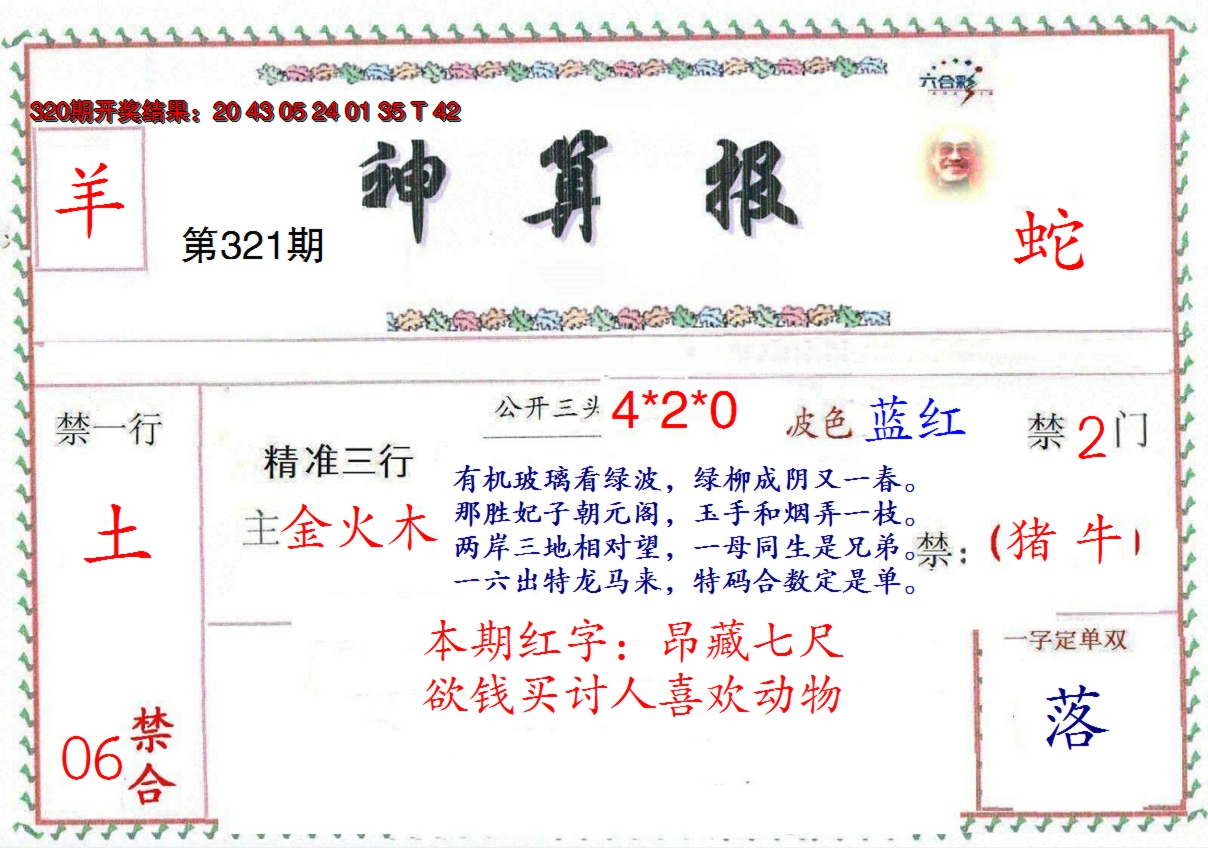 六合彩
320期开奖结果：20 43 05 24 01 35 T 42
羊
神算报
第321期
蛇
公开三头 4*2*0
波色 蓝红
禁一行
禁2门
精准三行
有机玻璃看绿波，绿柳成阴又一春。
土
主金火木
那胜妃子朝元阁，玉手和烟弄一枝。
两岸三地相对望，一母同生是兄弟。
禁：(猪 牛)
一六出特龙马来，特码合数定是单。
本期红字：昂藏七尺
欲钱买讨人喜欢动物
一字定单双
落
06
禁合